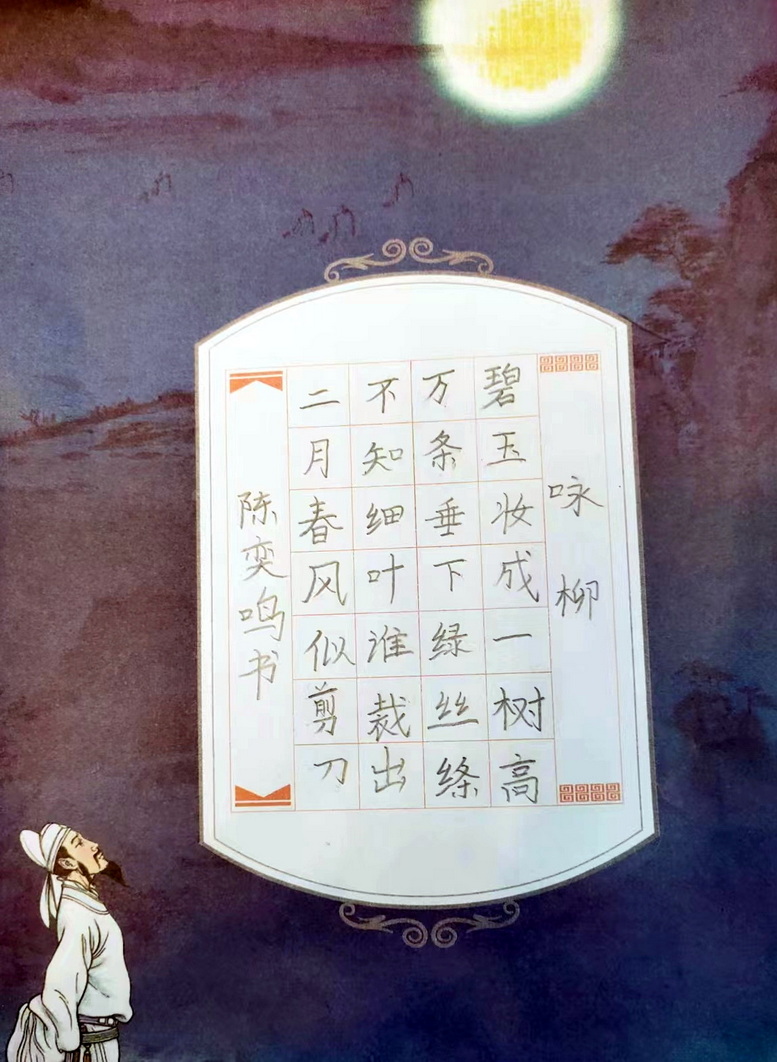 咏柳
碧玉妆成一树高
万条垂下绿丝绦
不知细叶谁裁出
二月春风似剪刀
陈奕鸣书